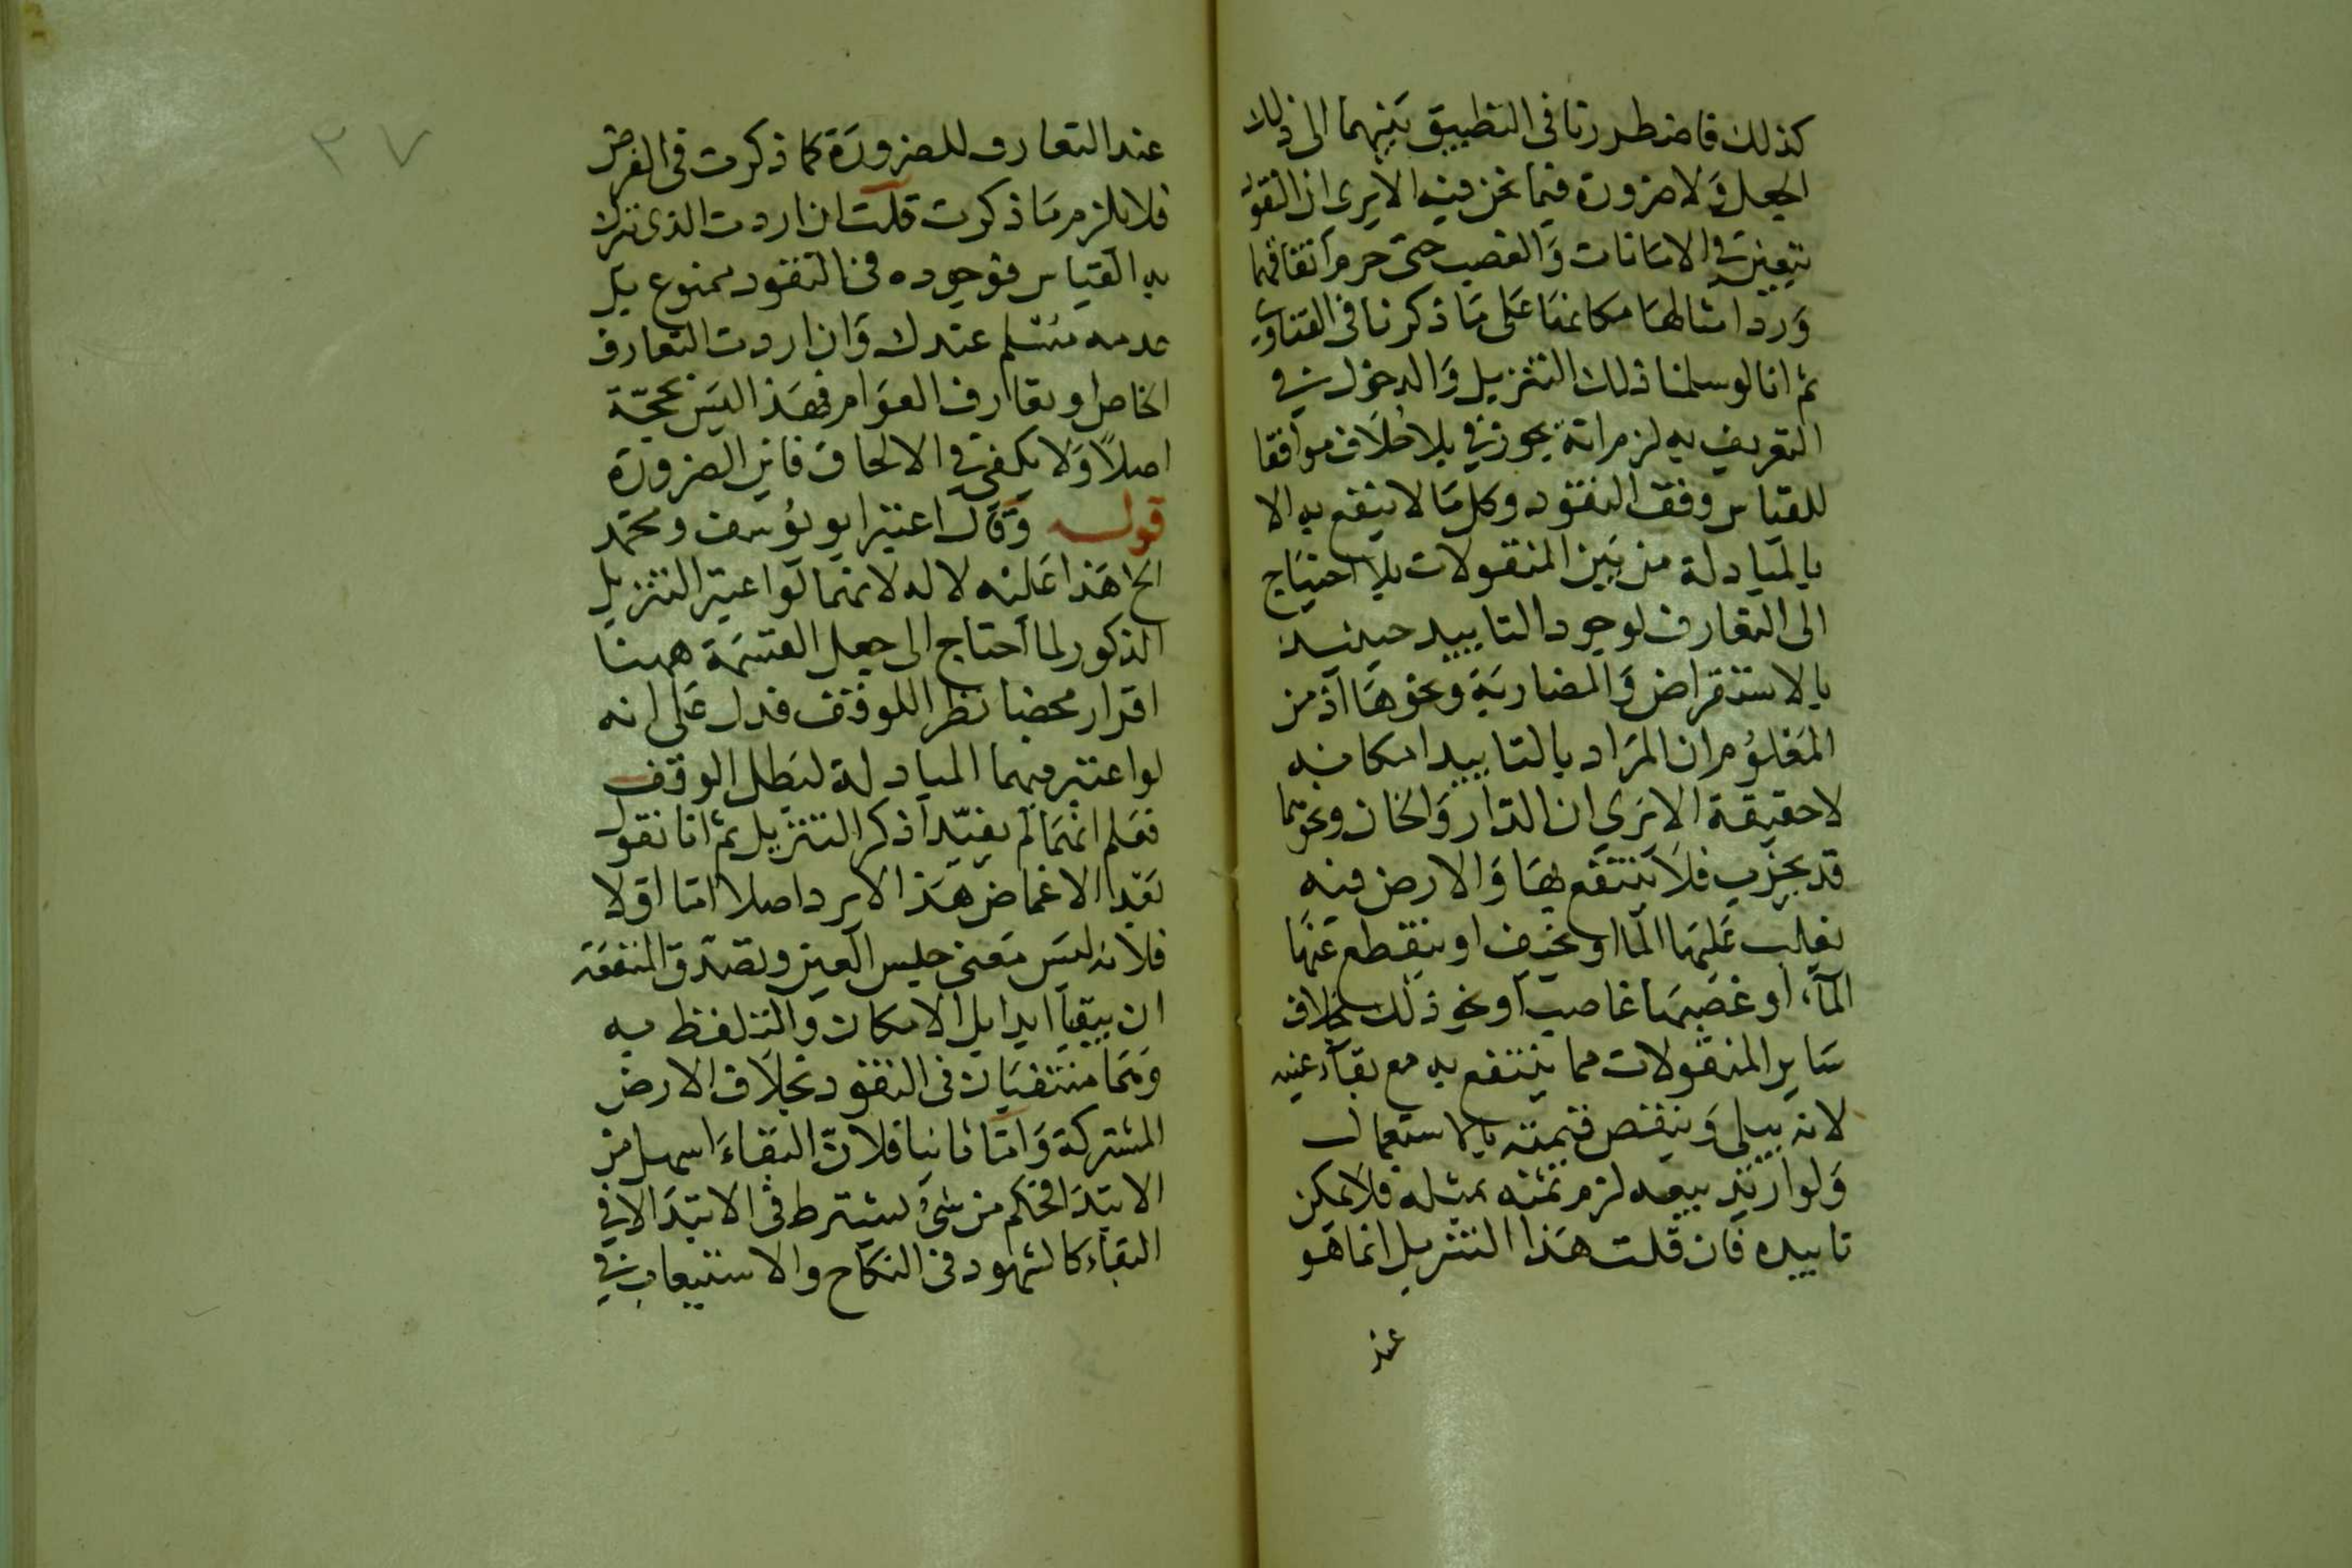 كذلك فاضطررنا فى التطبيق بينهما الى ذلك
الجعل ولا ضرورة فيما نحن فيه الا يرى ان النقود
تتعين فى الامانات والغصب حتى حرم انفاقهما
ورد امثالهما مكانهما على ما ذكرنا فى الفتاوى
ثم انا لو سلمنا ذلك التنزيل والدخول فى
التعريف به لزم انه يجوز فى بلا خلاف موافقا
للقياس وقف النقود وكل ما لا ينتفع به الا
بالمبادلة من بين المنقولات بلا احتياج
الى التعارف لوجود التابيد حينئذ
بالاستقراض والمضاربة ونحوها اذ من
المعلوم ان المراد بالتابيد امكانه
لا حقيقة الا ترى ان الدار والخان ونحوهما
قد يخرب فلا ينتفع بها والارض فيه
يغلب عليها الما او يخرف او ينقطع عنها
المآء او غصبها غاصب او نحو ذلك بخلاف
ساير المنقولات مما ينتفع به مع بقآء عينه
لانه يبلى وينقص قيمته بالاستعمال
ولو اريد بيعه لزم ثمنه بمثله فلا يمكن
تابيده فان قلت هذا التنزيل انما هو
عند
٣٧
عند التعارف للضرورة كما ذكرت فى القرض
فلا يلزم ما ذكرت قلت ان اردت الذى تترك
به القياس فوجوده فى النقود ممنوع بل
عدمه مسلم عندك وان اردت التعارف
الخاص او تعارف العوام فهذا ليس بحجة
اصلا ولا يكفى فى الالحاق فاين الضرورة
قوله وقال اعتبر ابو يوسف ومحمد
الخ هذا عليه لا له لانهما لو اعتبر التنزيل
المذكور لما احتاج الى جعل القسمة ههنا
اقرار محضا نظرا للوقف فدل على انه
لو اعتبر فيهما المبادلة لبطل الوقف
فعلم انهما لم يفيد اذكر التنزيل ثم انا نقول
بعد الاغماض هذا لا يرد اصلا اما اولا
فلانه ليس معنى حبس العين وتصدق المنفعة
ان يبقيا ابدا بل الامكان والتلفظ به
وهما منتفيان فى النقود بخلاف الارض
المشتركة واما ثانيا فلان البقاء اسهل من
الابتدا فكم من شئ يشترط فى الابتدا لا فى
البقاء كالشهود فى النكاح والاستيعاب فى